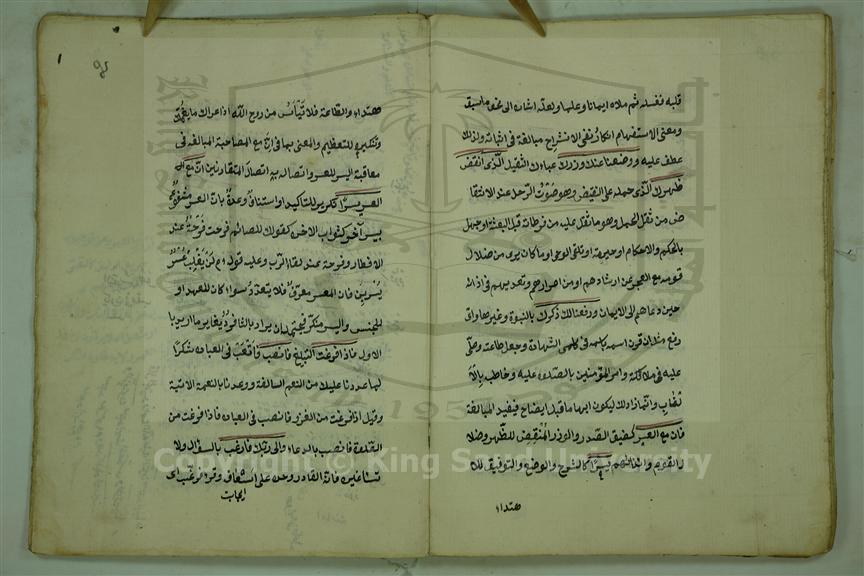 قلبه فغسله ثم ملاه ايمانا وعلما ولعله اشارة الى نحو ما سبق
ومعنى الاستفهام انكار نفى الانشراح مبالغة فى اثباته ولذلك
عطف عليه ووضعنا عنك وزرك عباءك الثقيل الذى انقض
ظهرك الذى حمله على النقيض وهو صوت الرحل عند الانتقا
ض من ثقل الحمل وهو ما ثقل عليه من فرطاته قبل البعثة او جهله
بالحكم والاحكام او حيرته او تلقى الوحى او ما كان يرى من ضلال
قومه مع العجز عن ارشادهم او من اصرارهم وتعديهم فى اذائه
حين دعاهم الى الايمان ورفعنا لك ذكرك بالنبوة وغيرها واى
رفع مثل ان قرن اسمه باسمه فى كلمتى الشهادة وجعل طاعته وصلى
عليه فى ملائكته وامر المؤمنين بالصلوة عليه وخاطبه بالا
لقاب وانما زاد لك ليكون ابهاما قبل ايضاح فيفيد المبالغة
فان مع العسر كضيق الصدر والوزر المنقض للظهر وضلا
ل القوم وايذائهم يسرا كالشرح والوضع والتوفيق للا
هتداء
هتداء والطاعة فلا تيأس من روح الله اذا عراك ما يغمك
وتنكيره للتعظيم والمعنى بما فى ان مع المصاحبة المبالغة فى
معاقبة اليسر للعسر واتصاله به اتصال المتقارنين ان مع
العسر يسرا تكرير للتاكيد او استئناف وعدة بان العسر مشفوع
بيسر آخر كثواب الاخرة كقولك للصائم فرحتان فرحة عند
الافطار وفرحة عند لقاء الرب وعليه قوله لن يغلب عسر
يسرين فان العسر معرف فلا يتعدد سواء كان للعهد او
للجنس واليسر منكر فيحتمل ان يراد بالثانى فرد يغاير ما اريد با
الاول فاذا فرغت من التبليغ فانصب فاتعب فى العبادة شكرا
لما عددنا عليك من النعم السالفة ووعدنا بالنعمة الاتية
وقيل اذا فرغت من الغزو فانصب فى العبادة فاذا فرغت من
الصلوة فانصب بالدعاء والى ربك فارغب بالسؤال ولا
تسأل غيره فانه القادر وحده على اسعافه وقرئ فرغب اى